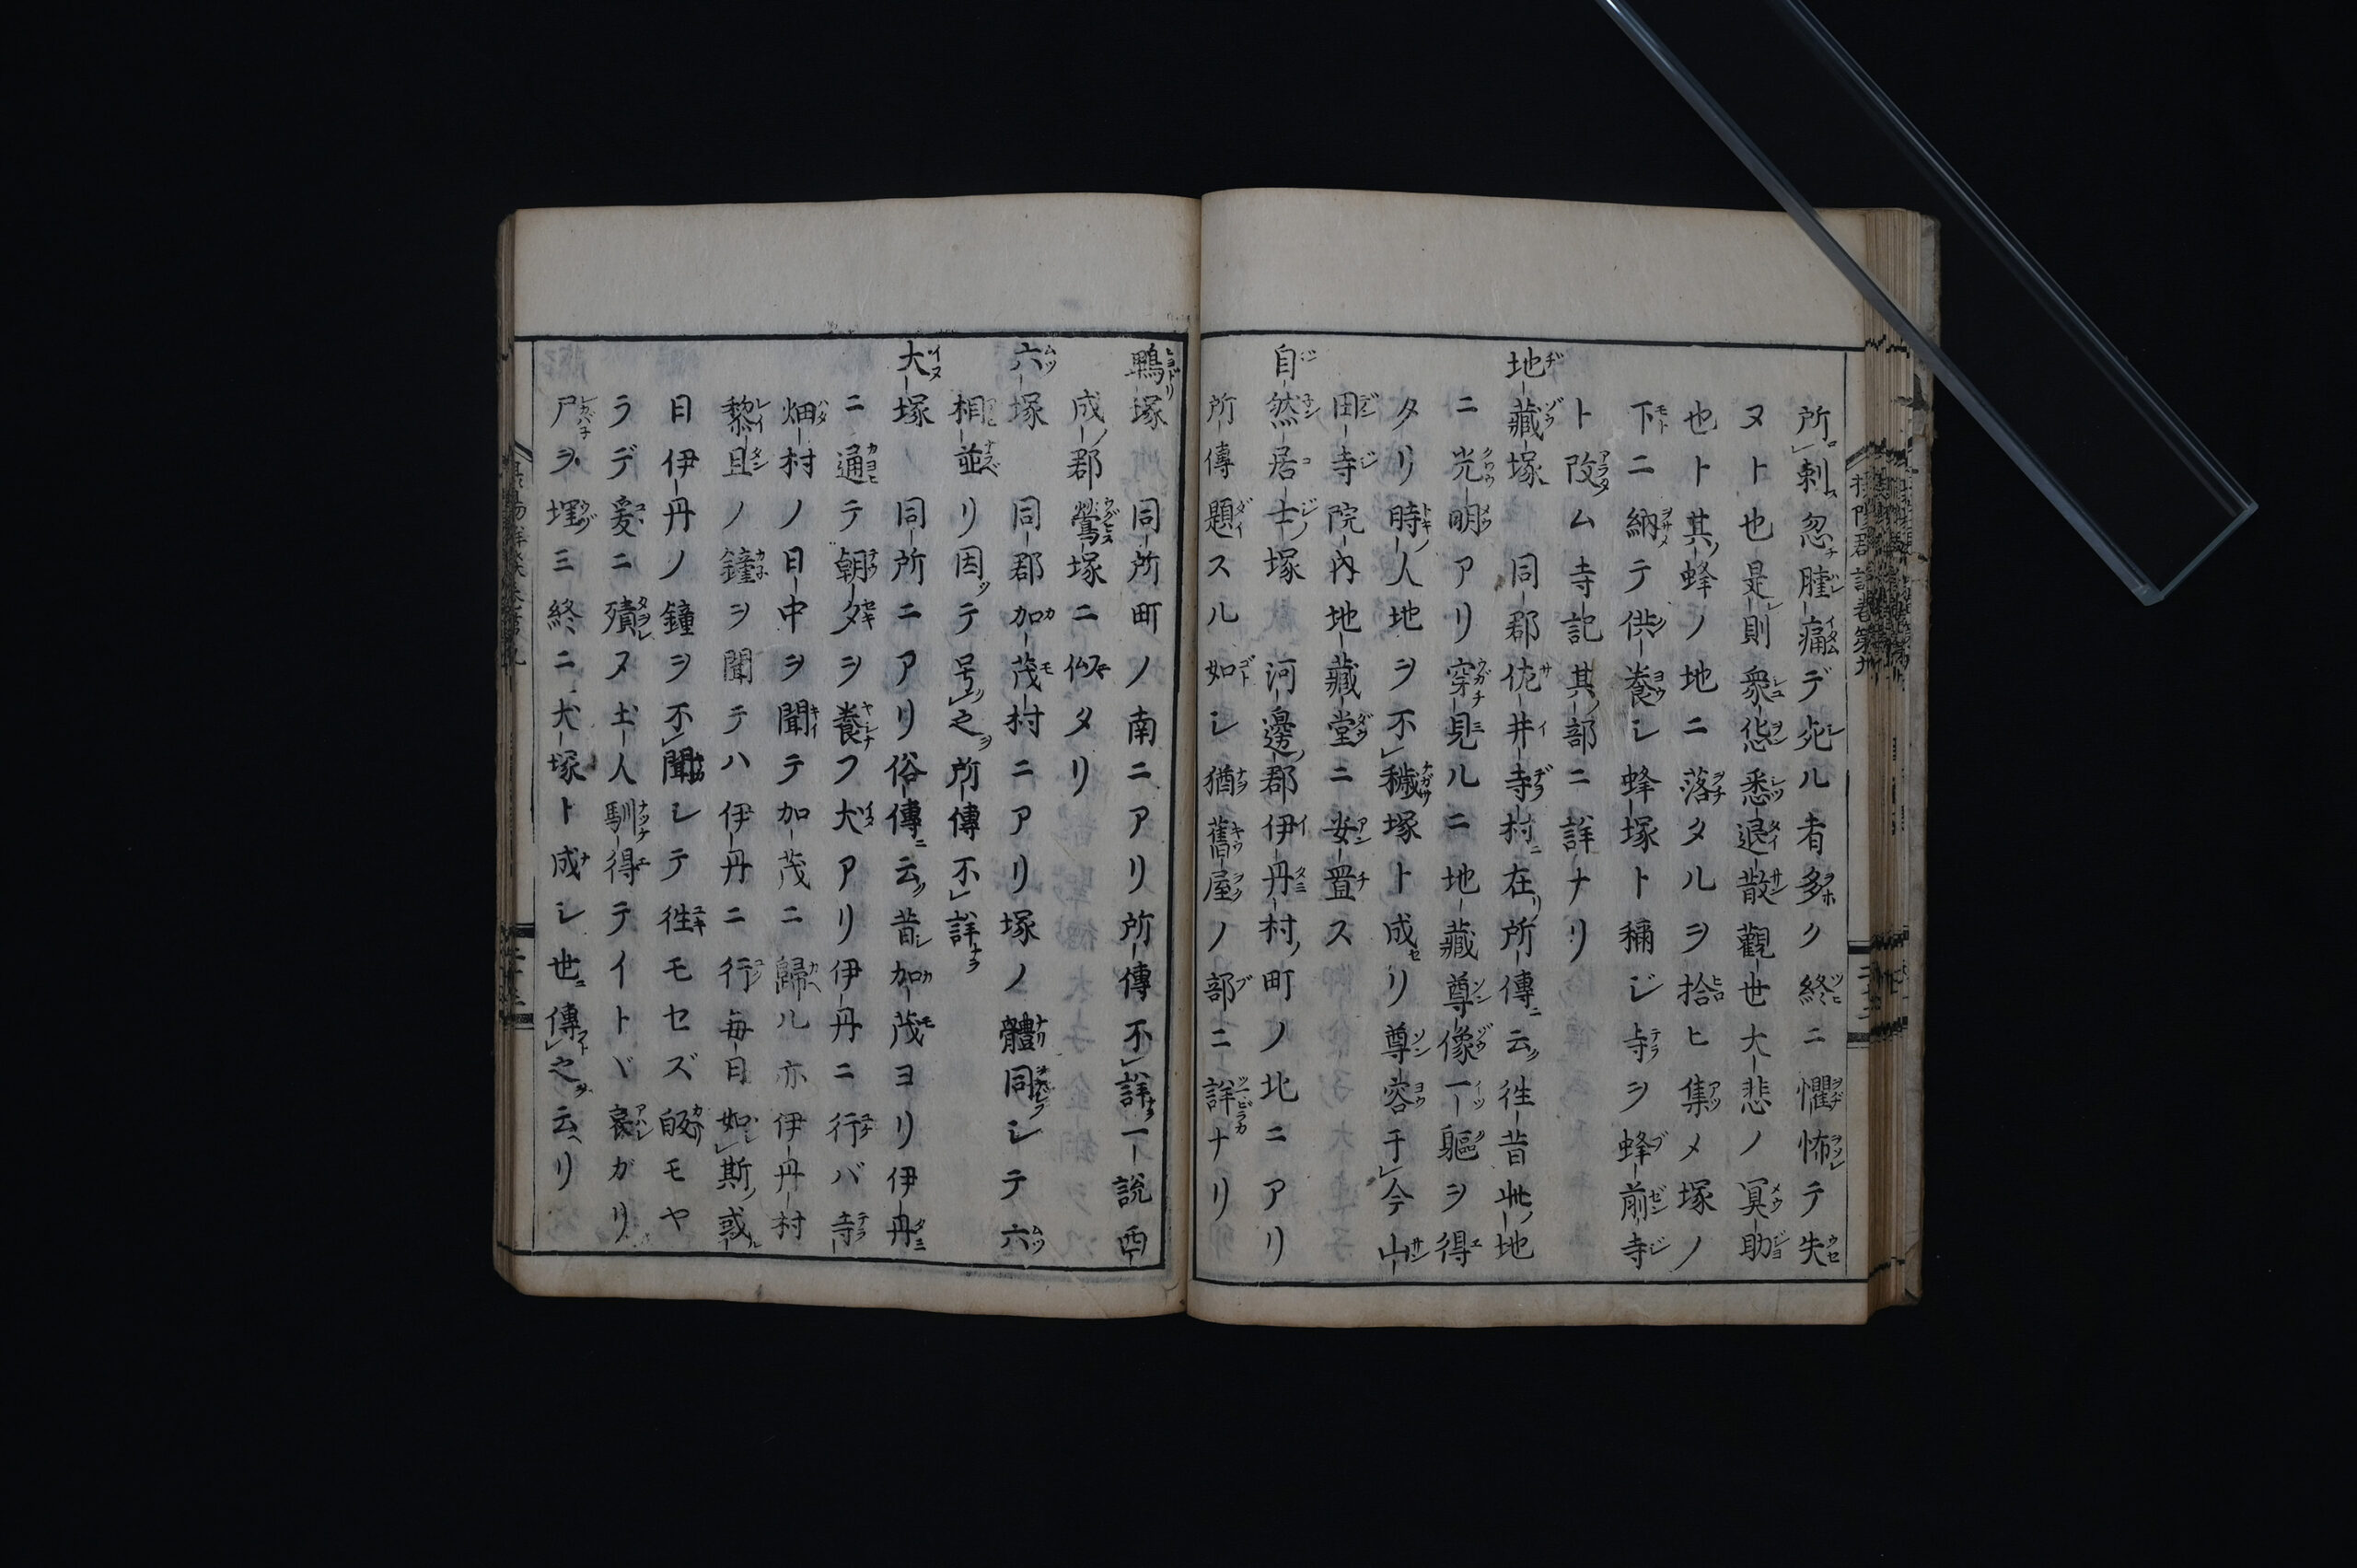 所刺忽腫痛デ死ル者多ク終ニ懼怖テ失
ヌト也是則衆怨悉退散觀世大悲ノ冥助
也ト其蜂ノ地ニ落タルヲ拾ヒ集メ塚ノ
下ニ納テ供養シ蜂塚ト稱ジ寺ヲ蜂前寺
ト改ム寺記其部ニ詳ナリ
地藏塚 同郡佐井寺村在所傳云徃昔此地
ニ光明アリ穿見ルニ地藏尊像一軀ヲ得
タリ時人地ヲ不穢塚ト成リ尊容于今山
田寺院内地藏堂ニ安置ス
自然居士塚 河邊郡伊丹村町ノ北ニアリ
所傳題スル如シ猶舊屋ノ部ニ詳ナリ
鵯塚 同所町ノ南ニアリ所傳不詳一説西
成郡鶯塚ニ似タリ
六塚 同郡加茂村ニアリ塚ノ體同シテ六
相並リ因テ号之所傳不詳
犬塚 同所ニアリ俗傳云昔加茂ヨリ伊丹
ニ通テ朝夕ヲ養フ犬アリ伊丹ニ行バ寺
畑村ノ日中ヲ聞テ加茂ニ歸ル亦伊丹村
黎旦ノ鐘ヲ聞テハ伊丹ニ行毎日如斯或
日伊丹ノ鐘ヲ不聞シテ徃モセズ皈モヤ
ラデ爰ニ殰ヌ土人馴得テイトヾ哀ガリ
尸ヲ埋ミ終ニ犬塚ト成シ世傳之云リ